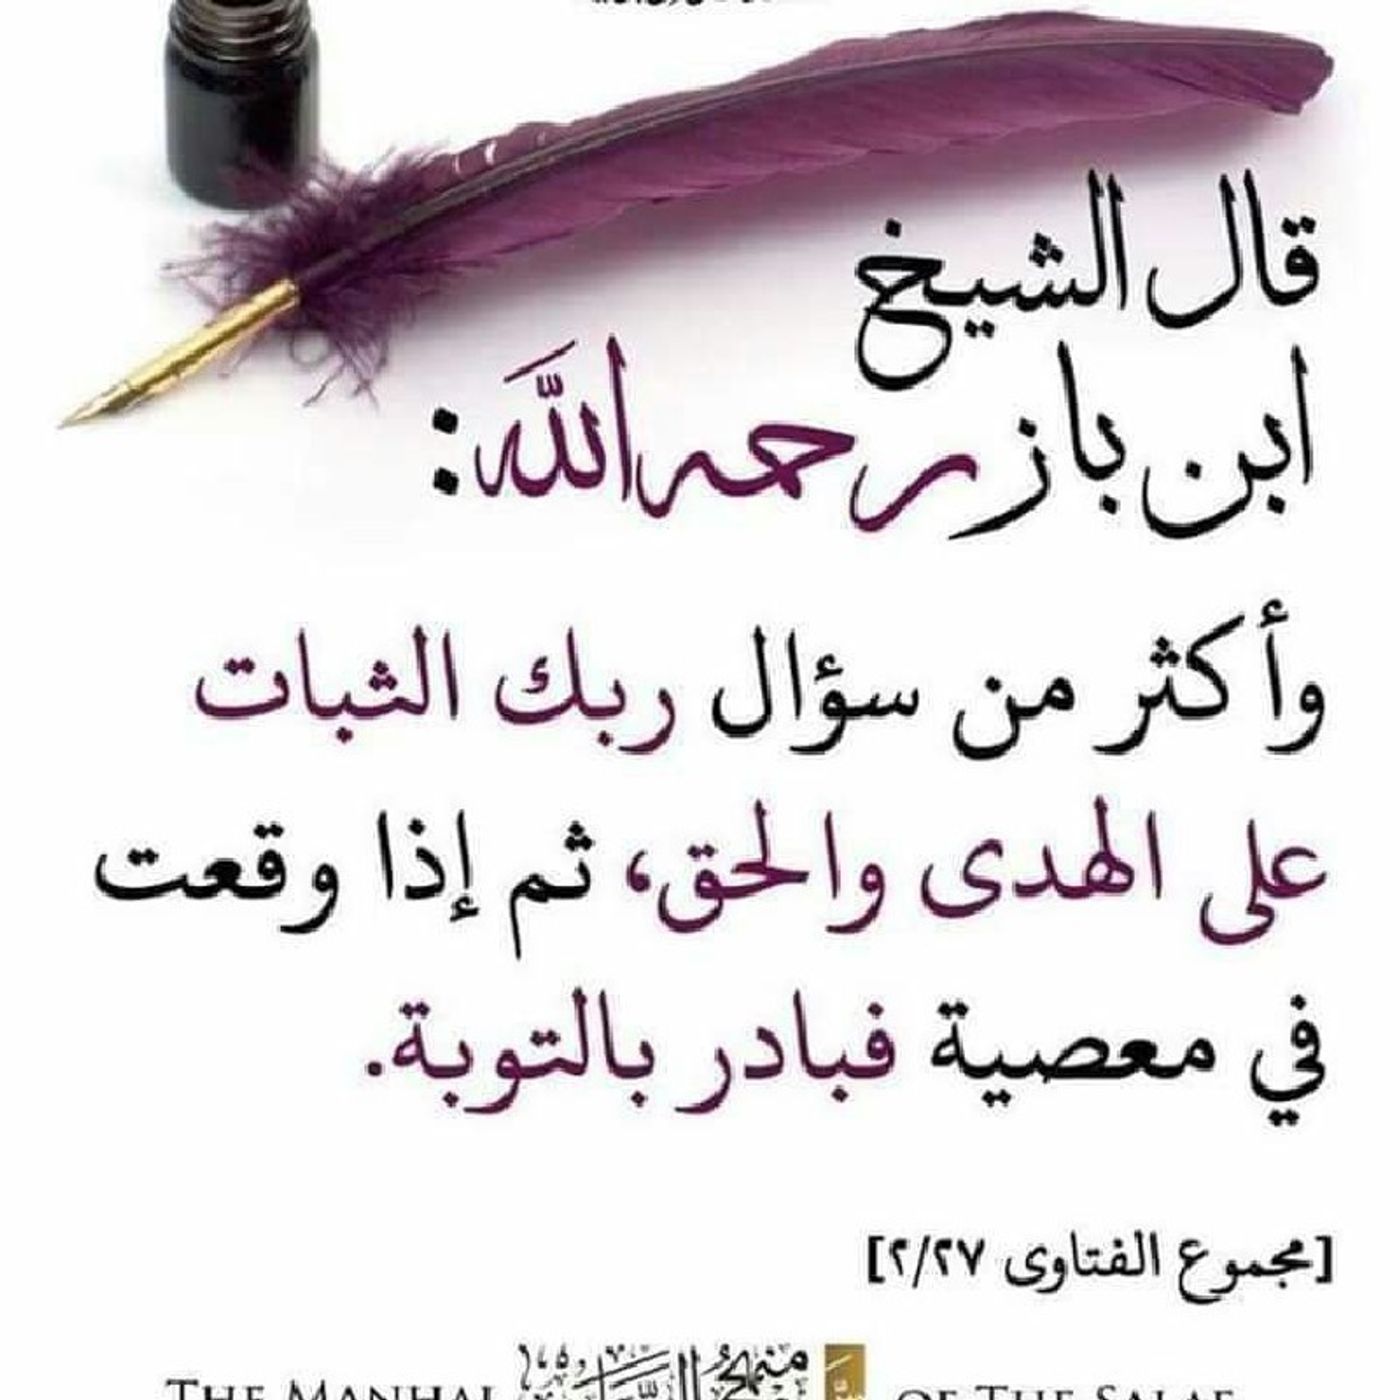 قال الشيخ
ابن باز رحمه اللَّه:
وأكثر من سؤال ربك الثبات
على الهدى والحق، ثم إذا وقعت
في معصية فبادر بالتوبة.
[مجموع الفتاوى ٢/٢٧]
THE MANHAL OF THE SALAF